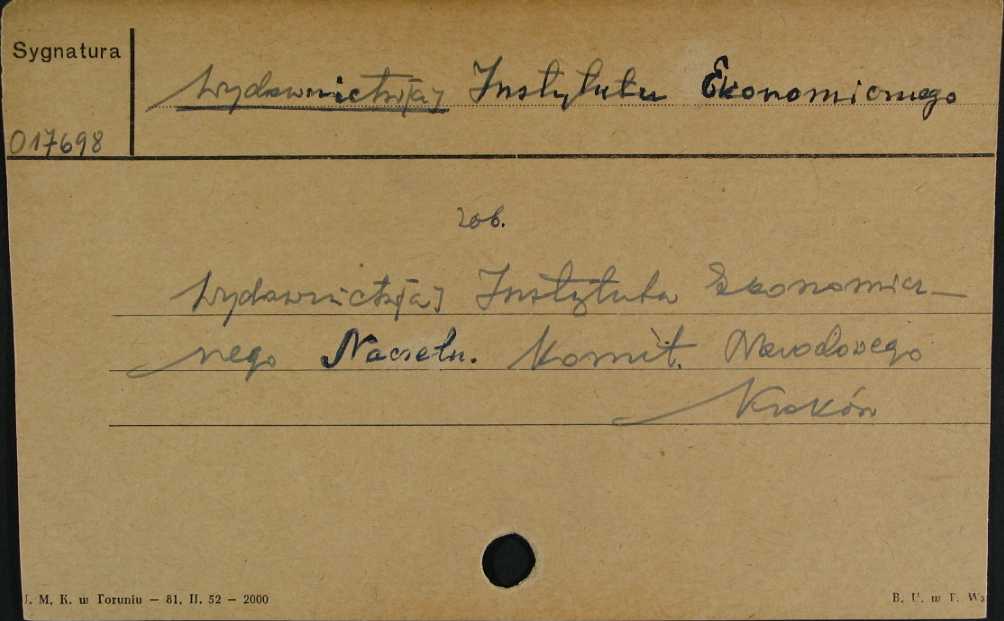 Sygnatura
Wydawnictw[a] Instytutu Ekonomicznego
017698
zob.
Wydawnictw[a] Instytutu Ekonomicz-
nego Naczeln. Komit. Narodowego
Kraków
U. M. K. w Toruniu – 81. II. 52 – 2000
B. U. w T. Wz